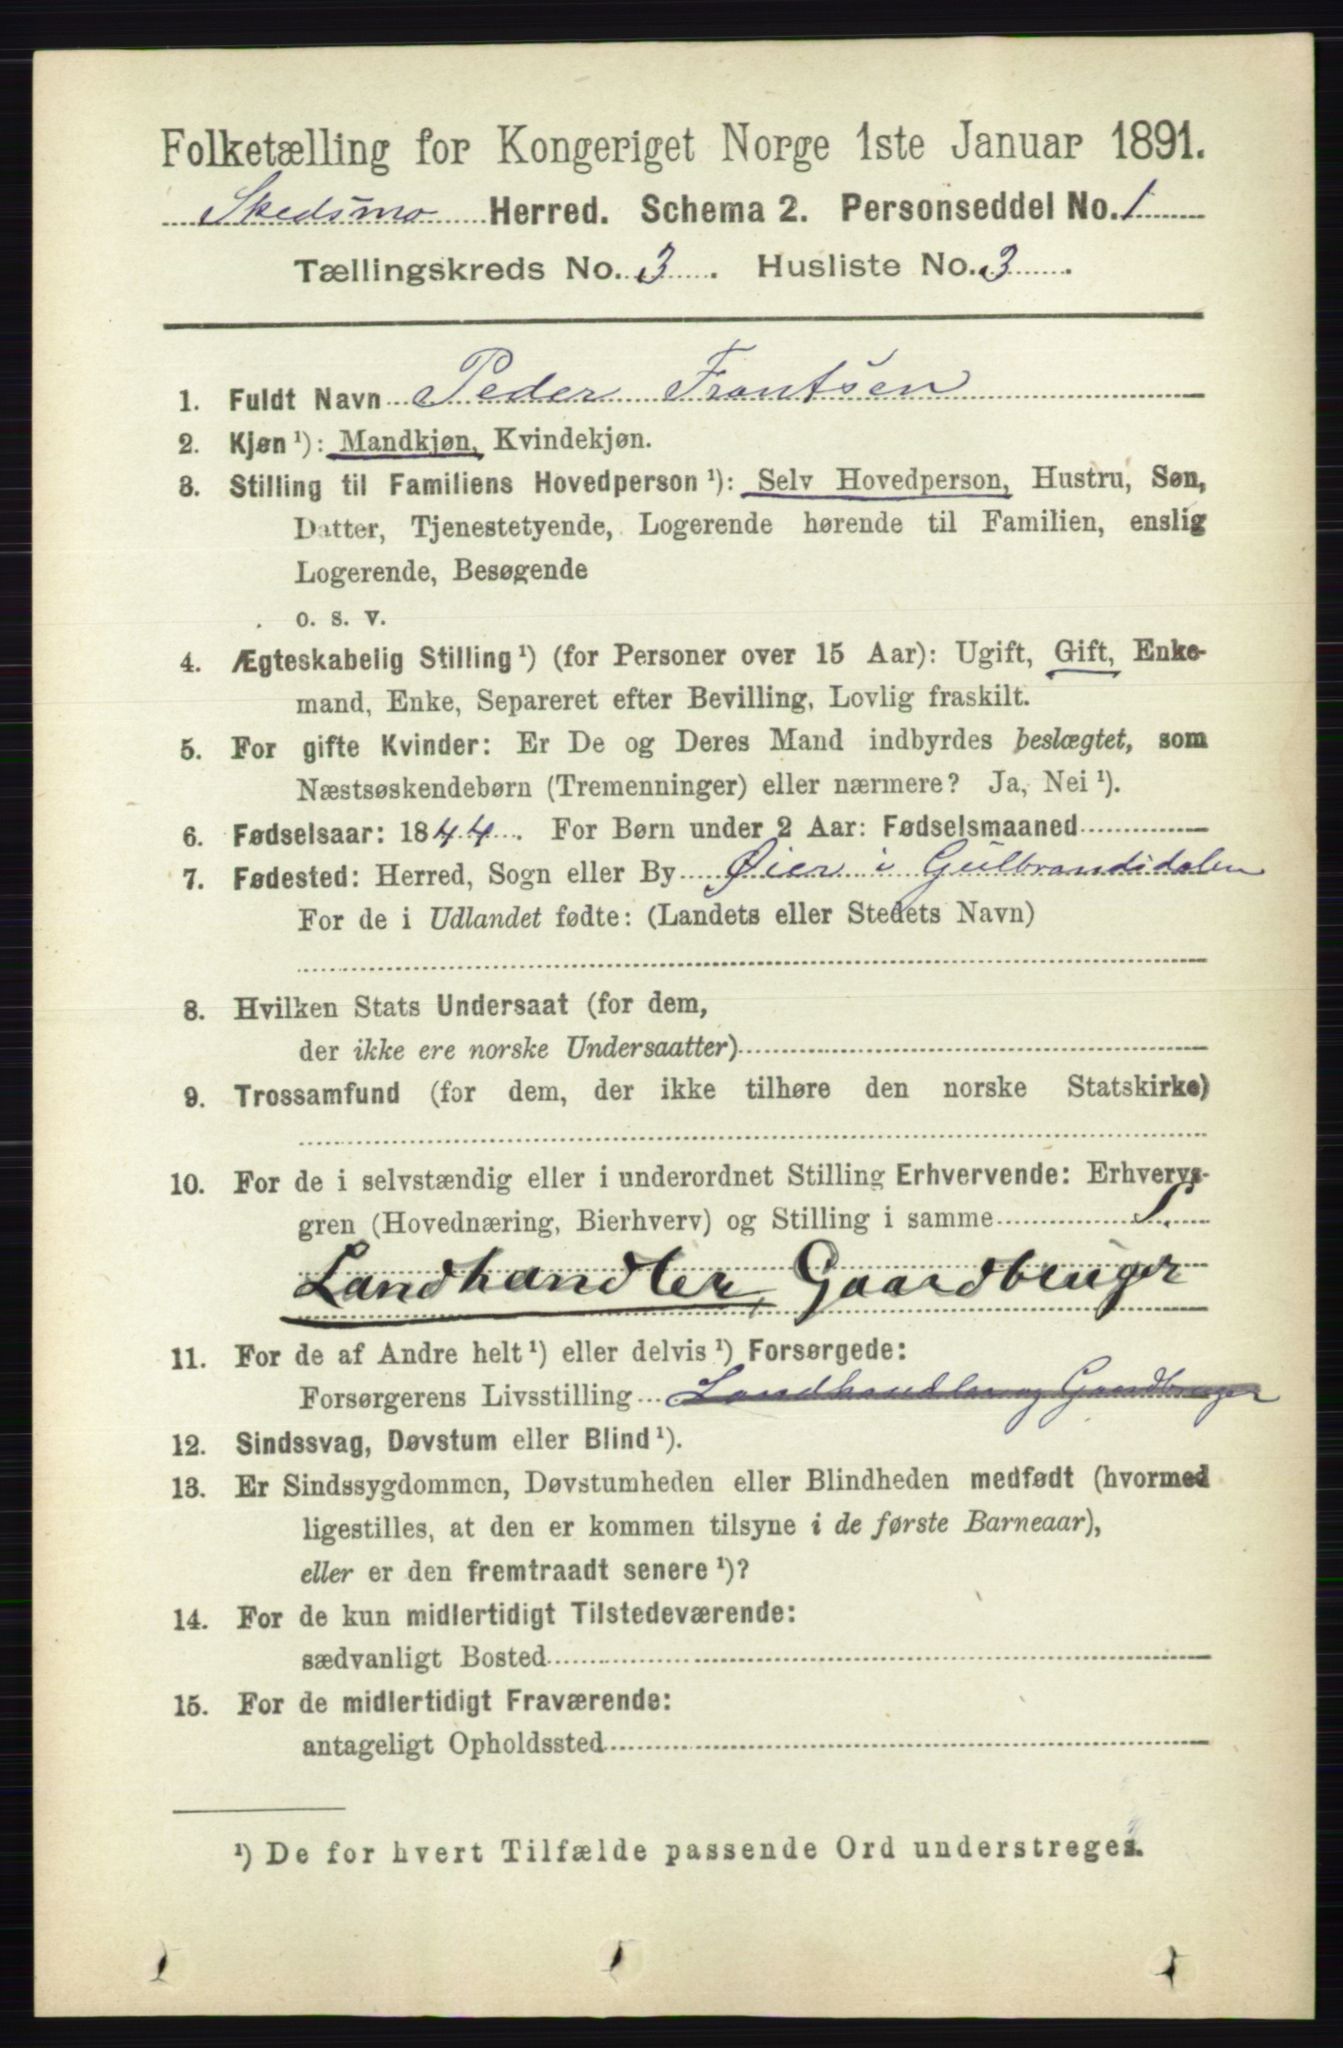 Folketælling for Kongeriget Norge 1ste Januar 1891.
Skedsmo Herred. Schema 2. Personseddel No. 1
Tællingskreds No. 3. Husliste No. 3.
1. Fuldt Navn Peder Frantsen
2. Kjøn ¹): Mandkjøn, Kvindekjøn.
3. Stilling til Familiens Hovedperson ¹): Selv Hovedperson, Hustru, Søn,
Datter, Tjenestetyende, Logerende hørende til Familien, enslig
Logerende, Besøgende
o. s. v.
4. Ægteskabelig Stilling ¹) (for Personer over 15 Aar): Ugift, Gift, Enke-
mand, Enke, Separeret efter Bevilling, Lovlig fraskilt.
5. For gifte Kvinder: Er De og Deres Mand indbyrdes beslægtet, som
Næstsøskendebørn (Tremenninger) eller nærmere? Ja, Nei ¹).
6. Fødselsaar: 1844. For Børn under 2 Aar: Fødselsmaaned
7. Fødested: Herred, Sogn eller By Øier i Gulbrandsdalen
For de i Udlandet fødte: (Landets eller Stedets Navn)
8. Hvilken Stats Undersaat (for dem,
der ikke ere norske Undersaatter)
9. Trossamfund (for dem, der ikke tilhøre den norske Statskirke)
10. For de i selvstændig eller i underordnet Stilling Erhvervende: Erhvervs-
gren (Hovednæring, Bierhverv) og Stilling i samme S.
Landhandler, Gaardbruger
11. For de af Andre helt ¹) eller delvis ¹) Forsørgede:
Forsørgerens Livsstilling Landhandler og Gaardbruger
12. Sindssvag, Døvstum eller Blind ¹).
13. Er Sindssygdommen, Døvstumheden eller Blindheden medfødt (hvormed
ligestilles, at den er kommen tilsyne i de første Barneaar),
eller er den fremtraadt senere ¹)?
14. For de kun midlertidigt Tilstedeværende:
sædvanligt Bosted
15. For de midlertidigt Fraværende:
antageligt Opholdssted
¹) De for hvert Tilfælde passende Ord understreges.